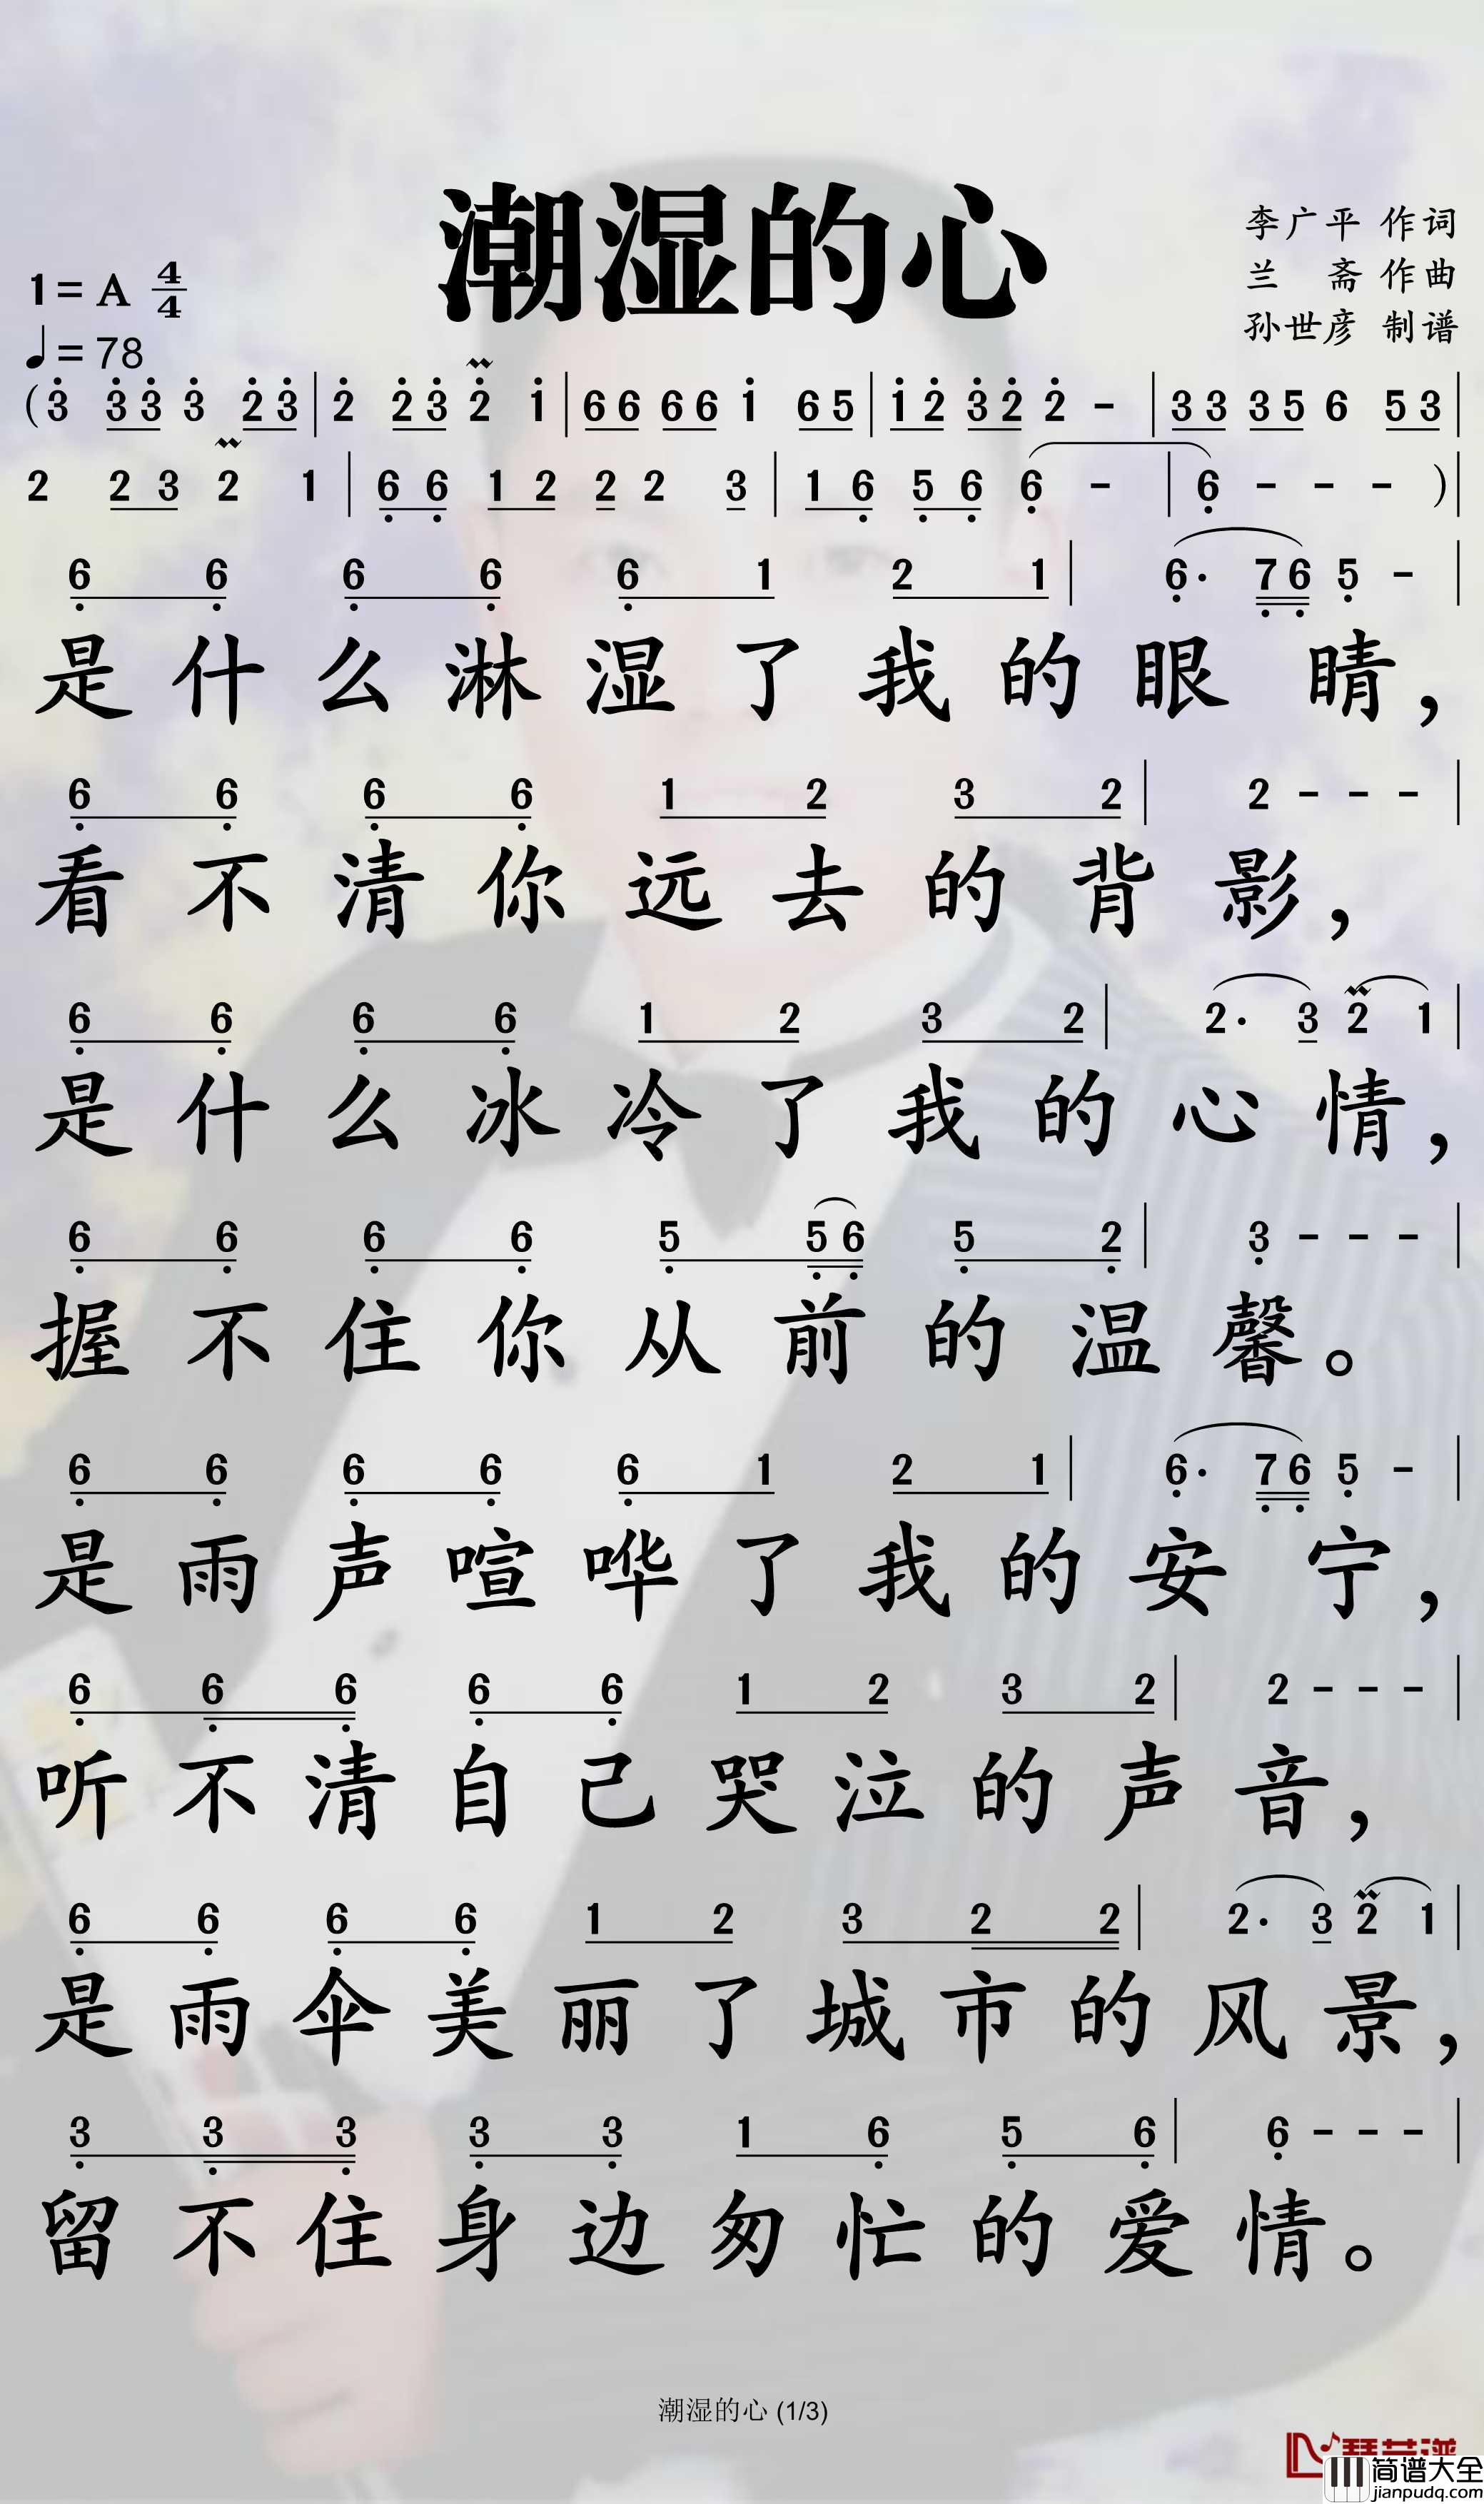 潮湿的心
李广平 作词
兰 斋 作曲
孙世彦 制谱
1=A 4/4
♩=78
(3 3 3 3 2 3 | 2 2 3 2 1 | 6 6 6 6 1 6 5 | 1 2 3 2 2 - | 3 3 3 5 6 5 3 |
2 2 3 2 1 | 6 6 1 2 2 2 3 | 1 6 5 6 6 - | 6 - - - ) |
6 6 6 6 6 1 2 1 | 6· 7 6 5 - |
是什么淋湿了我的眼睛，
6 6 6 6 1 2 3 2 | 2 - - - |
看不清你远去的背影，
6 6 6 6 1 2 3 2 | 2· 3 2 1 |
是什么冰冷了我的心情，
6 6 6 6 5 5 6 5 2 | 3 - - - |
握不住你从前的温馨。
6 6 6 6 6 1 2 1 | 6· 7 6 5 - |
是雨声喧哗了我的安宁，
6 6 6 6 6 1 2 3 2 | 2 - - - |
听不清自己哭泣的声音，
6 6 6 6 1 2 3 2 2 | 2· 3 2 1 |
是雨伞美丽了城市的风景，
3 3 3 3 3 1 6 5 6 | 6 - - - |
留不住身边匆忙的爱情。
潮湿的心 (1/3)
简谱大全
jianpudq.com